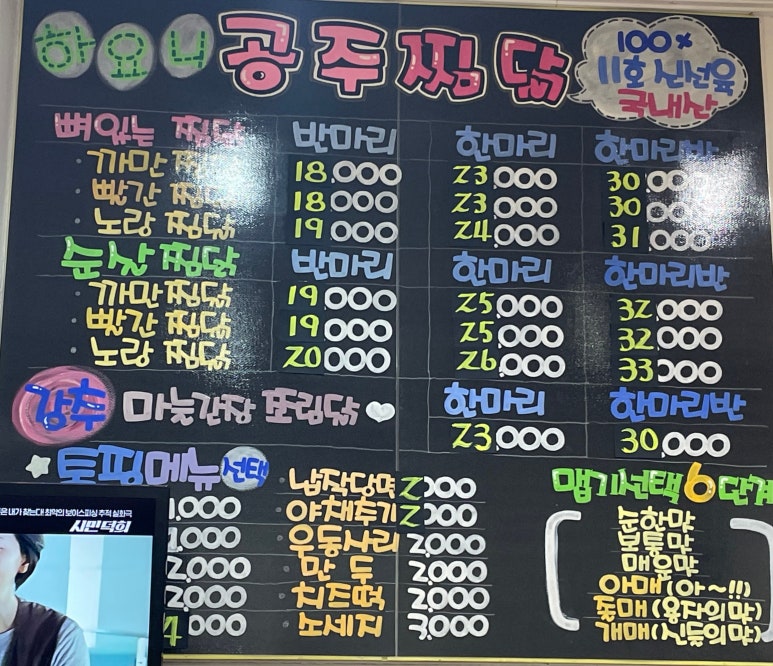 하요니 공주 찜닭
100%
11호 신선육
국내산
뼈있는 찜닭 반마리 한마리 한마리반
· 까만 찜닭 18,000 23,000 30,000
· 빨간 찜닭 18,000 23,000 30,000
· 노랑 찜닭 19,000 24,000 31,000
순살 찜닭 반마리 한마리 한마리반
· 까만찜닭 19,000 25,000 32,000
· 빨간찜닭 19,000 25,000 32,000
· 노랑찜닭 20,000 26,000 33,000
강추 마늘간장 쪼림닭 한마리 한마리반
23,000 30,000
토핑메뉴 선택
,000
1,000
2,000
2,000
4,000
· 납작당면 2,000
· 야채추가 2,000
· 우동사리 2,000
· 만두 2,000
· 치즈떡 2,000
· 소세지 3,000
맵기선택 6단계
순한맛
보통맛
매운맛
아매 (아~!!)
좋매 (용자의맛)
개매 (신들의맛)
은 내가 찾는다! 최악의 보이스피싱 추적 실화극
시민덕희